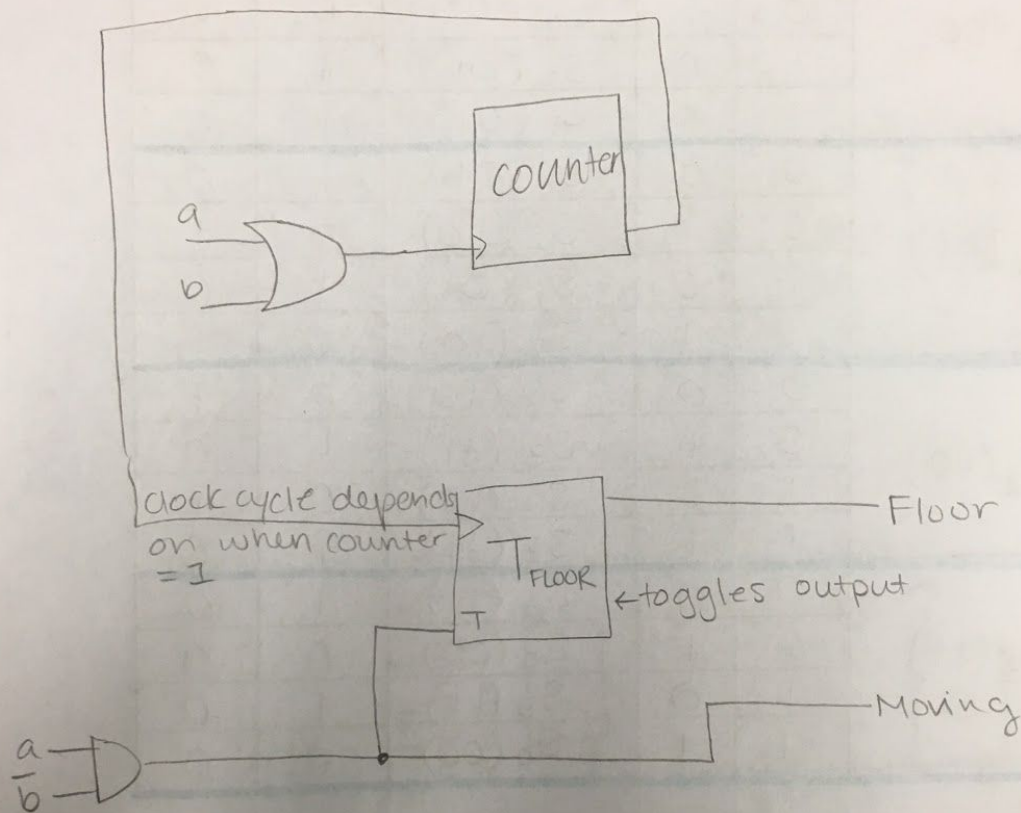 counter
a
b
clock cycle depends
on when counter
= 1
Floor
T FLOOR
←toggles output
T
Moving
a
b̅